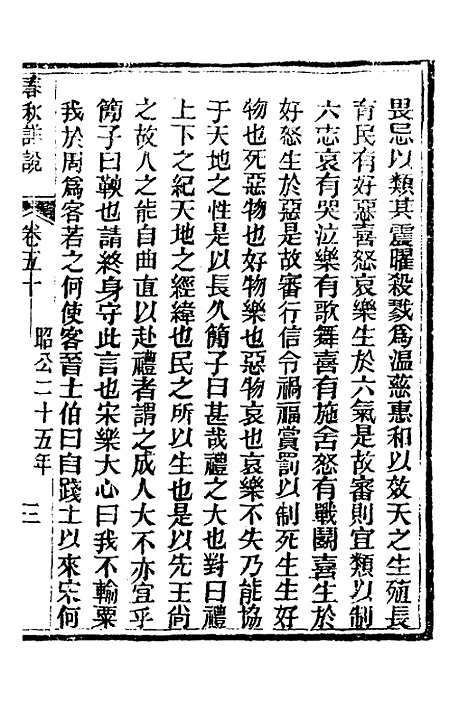 畏忌以類其震曜殺戮爲溫慈惠和以效天之生殖長
育民有好惡喜怒哀樂生於六氣是故審則宜類以制
六志哀有哭泣樂有歌舞喜有施舍怒有戰鬬喜生於
好怒生於惡是故審行信令禍福賞罰以制死生生好
物也死惡物也好物樂也惡物哀也哀樂不失乃能協
于天地之性是以長久簡子曰甚哉禮之大也對曰禮
上下之紀天地之經緯也民之所以生也是以先王尚
之故人之能自曲直以赴禮者謂之成人大不亦宜乎
簡子曰鞅也請終身守此言也宋樂大心曰我不輸粟
我於周爲客若之何使客晉士伯曰自踐土以來宋何
春秋詳說 卷五十 昭公二十五年 三